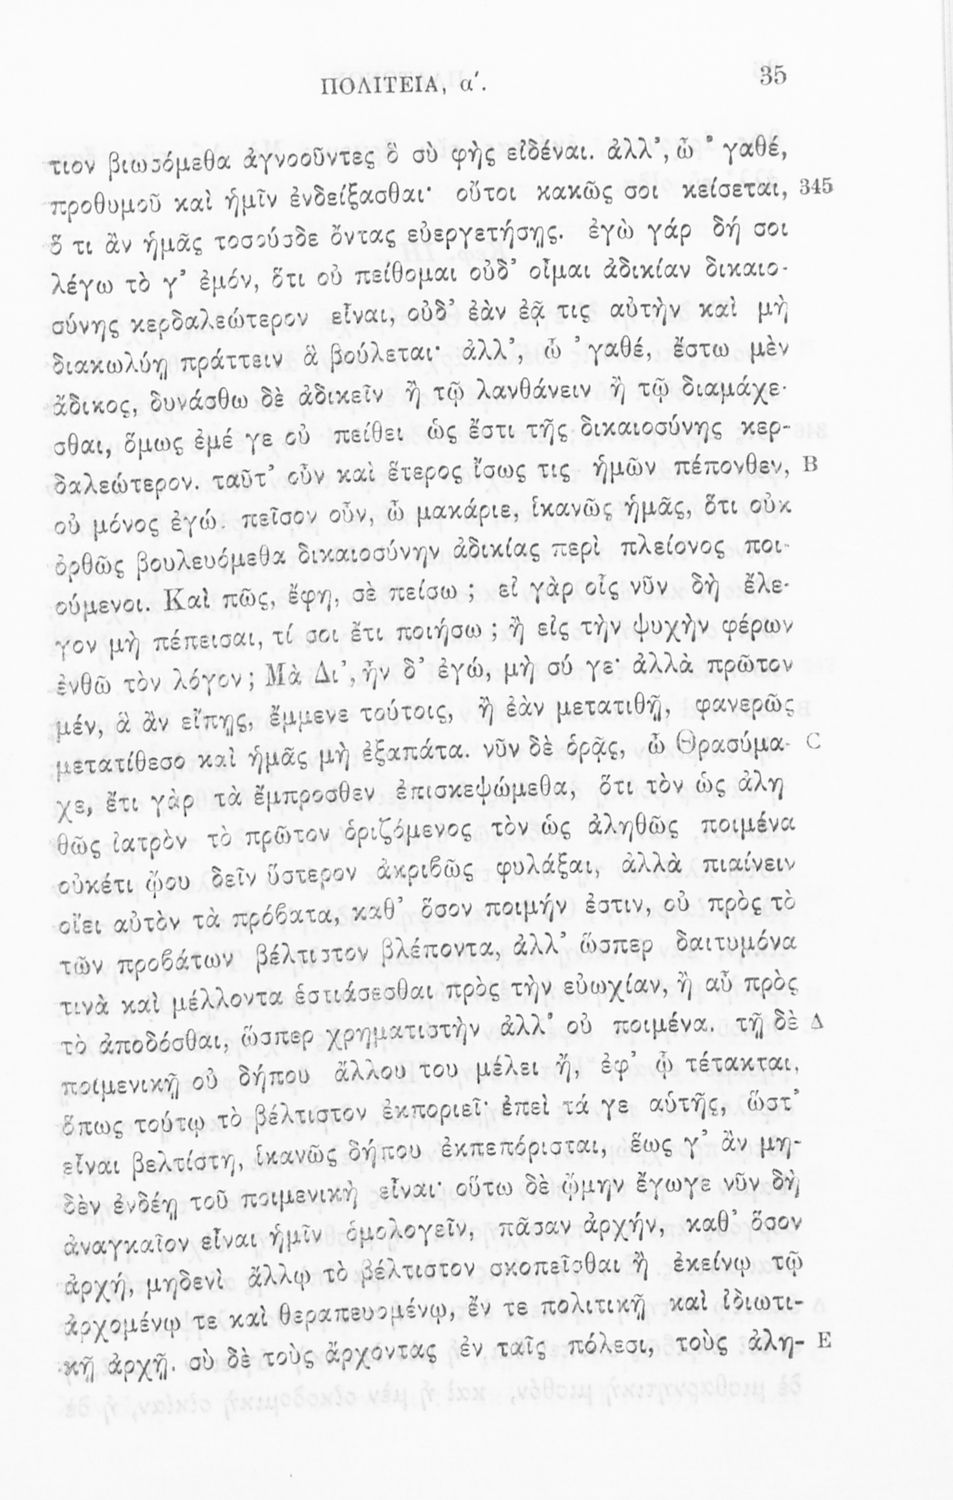 ΠΟΛΙΤΕΙΑ, α΄. 35
τιον βιωσόμεθα ἀγνοοῦντες ὃ σὺ φῂς εἰδέναι. ἀλλ’, ὦ ’ γαθέ,
προθυμοῦ καὶ ἡμῖν ἐνδείξασθαι· οὔτοι κακῶς σοι κείσεται, 345
ὅ τι ἂν ἡμᾶς τοσούσδε ὄντας εὐεργετήσῃς. ἐγὼ γάρ δή σοι
λέγω τὸ γ’ ἐμόν, ὅτι οὐ πείθομαι οὐδ’ οἶμαι ἀδικίαν δικαιο-
σύνης κερδαλεώτερον εἶναι, οὐδ’ ἐὰν ἐᾷ τις αὐτὴν καὶ μὴ
διακωλύῃ πράττειν ἃ βούλεται· ἀλλ’, ὦ ’γαθέ, ἔστω μὲν
ἄδικος, δυνάσθω δὲ ἀδικεῖν ἢ τῷ λανθάνειν ἢ τῷ διαμάχε-
σθαι, ὅμως ἐμέ γε οὐ πείθει ὡς ἔστι τῆς δικαιοσύνης κερ-
δαλεώτερον. ταῦτ’ οὖν καὶ ἕτερος ἴσως τις ἡμῶν πέπονθεν, B
οὐ μόνος ἐγώ. πεῖσον οὖν, ὦ μακάριε, ἱκανῶς ἡμᾶς, ὅτι οὐκ
ὀρθῶς βουλευόμεθα δικαιοσύνην ἀδικίας περὶ πλείονος ποι-
ούμενοι. Καὶ πῶς, ἔφη, σὲ πείσω ; εἰ γὰρ οἷς νῦν δὴ ἔλε-
γον μὴ πέπεισαι, τί σοι ἔτι ποιήσω ; ἢ εἰς τὴν ψυχὴν φέρων
ἐνθῶ τὸν λόγον ; Μὰ Δι’, ἦν δ’ ἐγώ, μὴ σύ γε· ἀλλὰ πρῶτον
μέν, ἃ ἂν εἴπῃς, ἔμμενε τούτοις, ἢ ἐὰν μετατιθῇ, φανερῶς
μετατίθεσο καὶ ἡμᾶς μὴ ἐξαπάτα. νῦν δὲ ὁρᾷς, ὦ Θρασύμα- C
χε, ἔτι γὰρ τὰ ἔμπροσθεν ἐπισκεψώμεθα, ὅτι τὸν ὡς ἀλη
θῶς ἰατρὸν τὸ πρῶτον ὁριζόμενος τὸν ὡς ἀληθῶς ποιμένα
οὐκέτι ᾤου δεῖν ὕστερον ἀκριϐῶς φυλάξαι, ἀλλὰ πιαίνειν
οἴει αὐτὸν τὰ πρόϐατα, καθ’ ὅσον ποιμήν ἐστιν, οὐ πρὸς τὸ
τῶν προϐάτων βέλτιστον βλέποντα, ἀλλ’ ὥσπερ δαιτυμόνα
τινὰ καὶ μέλλοντα ἑστιάσεσθαι πρὸς τὴν εὐωχίαν, ἢ αὖ πρὸς
τὸ ἀποδόσθαι, ὥσπερ χρηματιστὴν ἀλλ’ οὐ ποιμένα. τῇ δὲ Δ
ποιμενικῇ οὐ δήπου ἄλλου του μέλει ἤ, ἐφ’ ᾧ τέτακται,
ὅπως τούτῳ τὸ βέλτιστον ἐκποριεῖ· ἐπεὶ τά γε αὑτῆς, ὥστ’
εἶναι βελτίστη, ἱκανῶς δήπου ἐκπεπόρισται, ἕως γ’ ἂν μη-
δὲν ἐνδέῃ τοῦ ποιμενικὴ εἶναι· οὕτω δὲ ᾤμην ἔγωγε νῦν δὴ
ἀναγκαῖον εἶναι ἡμῖν ὁμολογεῖν, πᾶσαν ἀρχήν, καθ’ ὅσον
ἀρχή, μηδενὶ ἄλλῳ τὸ βέλτιστον σκοπεῖσθαι ἢ ἐκείνῳ τῷ
ἀρχομένῳ τε καὶ θεραπευομένῳ, ἔν τε πολιτικῇ καὶ ἰδιωτι-
κῇ ἀρχῇ. σὺ δὲ τοὺς ἄρχοντας ἐν ταῖς πόλεσι, τοὺς ἀλη- E